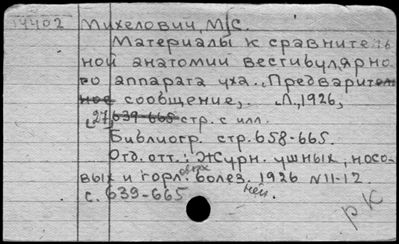 14402 Михелович, М.С.
Материалы к сравнитель
ной анатомии вестибулярно
го аппарата уха. Предварител
ное сообщение. Л., 1926,
[27] 639-665 стр. с илл.
Библиогр. стр. 658-665.
Отд. отт.: Журн. ушных, носо-
вых и горл. болез. 1926 N 11-12.
с. 639-665
РК